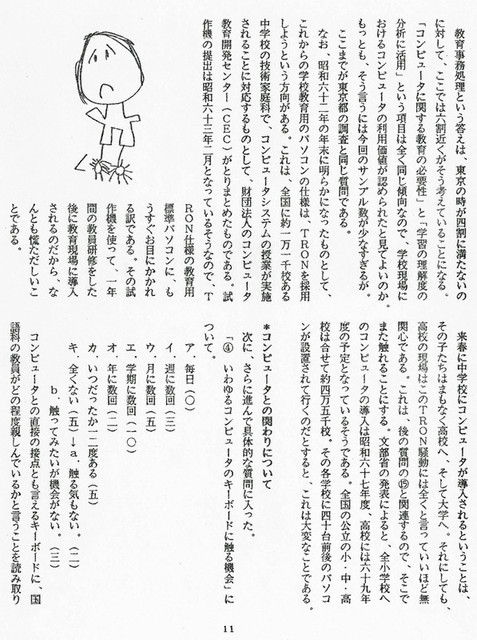 教育事務処理という答えは、東京の時が四割に満たないの
に対して、ここでは六割近くがそう考えていることになる。
「コンピュータに関する教育の必要性」と「学習の理解度の
分析に活用」という項目は全く同じ傾向なので、学校現場に
おけるコンピュータの利用価値が認められたと見てよいのか。
もっとも、そう言うには今回のサンプル数が少なすぎるが。
　ここまでが東京都の調査と同じ質問である。
　なお、昭和六十二年の年末に明らかになったものとして、
これからの学校教育用のパソコンの仕様は、TRONを採用
しようという方向がある。これは、全国に約一万一千校ある
中学校の技術家庭科で、コンピュータシステムの授業が実施
されることに対応するものとして、財団法人のコンピュータ
教育開発センター（CEC）がとりまとめたものである。試
作機の提出は昭和六十三年二月となっているそうなので、T
RON仕様の教育用
標準パソコンに、も
うすぐお目にかかれ
る訳である。その試
作機を使って、一年
間の教員研修をした
後に教育現場に導入
されるのだから、な
んとも慌ただしいこ
とである。
　来春に中学校にコンピュータが導入されるということは、
その子たちはまもなく高校へ、そして大学へ。それにしても、
高校の現場はこのTRON騒動には全くと言っていいほど無
関心である。これは、後の質問の⑲と関連するので、そこで
また触れることにする。文部省の発表によると、全小学校へ
のコンピュータの導入は昭和六十七年度、高校には六十九年
度の予定となっているそうである。全国の公立の小・中・高
校は合せて約四万五千校。その各学校に四十台前後のパソコ
ンが設置されて行くのだとすると、これは大変なことである。
＊コンピュータとの関わりについて
　次に、さらに進んで具体的な質問に入った。
　「④　いわゆるコンピュータのキーボードに触る機会」に
ついて。
ア．毎日（〇）
イ．週に数回（三）
ウ．月に数回（五）
エ．学期に数回（一〇）
オ．年に数回（二）
カ．いつだったか一二度ある（五）
キ．全くない（五）→a．触る気もない。（二）
b．触ってみたいが機会がない。（三）
　コンピュータとの直接の接点とも言えるキーボードに、国
語科の教員がどの程度親しんでいるかと言うことを読み取り
11